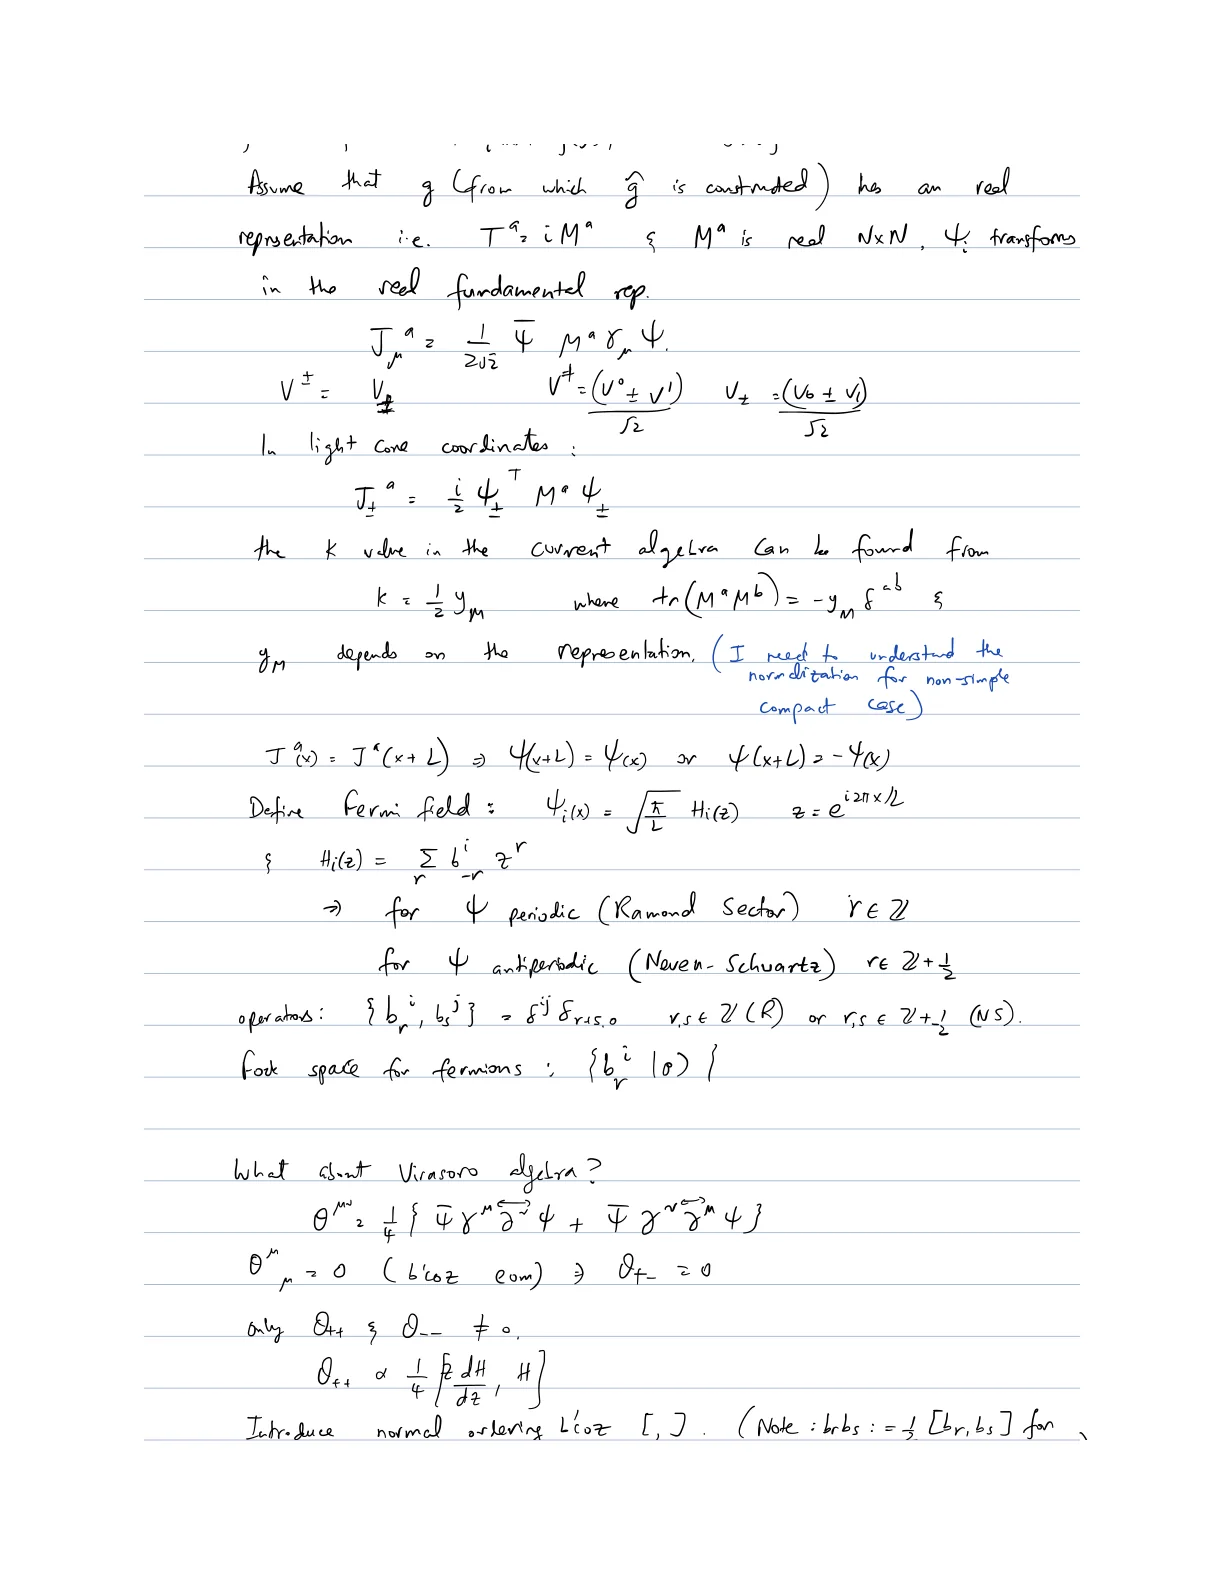 Assume that g (from which ĝ is constructed) has an real
representation i.e. T^a = iM^a & M^a is real N×N, ψ_i transforms
in the real fundamental rep.
J_μ^a = 1/(2√2) ψ̄ M^a γ_μ ψ.
V^± = V_∓ V^± = (V^0 ± V^1)/√2 V_± = (V_0 ± V_1)/√2
In light cone coordinates :
J_±^a = i/2 ψ_±^T M^a ψ_±
the K value in the current algebra can be found from
K = 1/2 y_M where tr(M^a M^b) = -y_M δ^ab &
y_M depends on the representation. (I need to understand the
normalization for non-simple
compact case)
J^a(x) = J^a(x+L) ⇒ ψ(x+L) = ψ(x) or ψ(x+L) = -ψ(x)
Define Fermi field : ψ_i(x) = √(ħ/L) H_i(z) z = e^{i2πx/L}
& H_i(z) = Σ_r b^i_{-r} z^r
⇒ for ψ periodic (Ramond Sector) r ∈ ℤ
for ψ antiperiodic (Neven-Schwartz) r ∈ ℤ + 1/2
operators : {b_r^i, b_s^j} = δ^ij δ_{r+s,0} r,s ∈ ℤ (R) or r,s ∈ ℤ + 1/2 (NS).
Fock space for fermions : {b_r^i |0⟩}
What about Virasoro algebra?
θ^{μν} = 1/4 { ψ̄ γ^μ ∂↔^ν ψ + ψ̄ γ^ν ∂↔^μ ψ }
θ^μ_μ = 0 (b'coz eom) ⇒ θ_{+-} = 0
only θ_{++} & θ_{--} ≠ 0.
θ_{++} ∝ 1/4 [z dH/dz, H]
Introduce normal ordering b'coz [,]. (Note : b_r b_s : = 1/2 [b_r, b_s] for